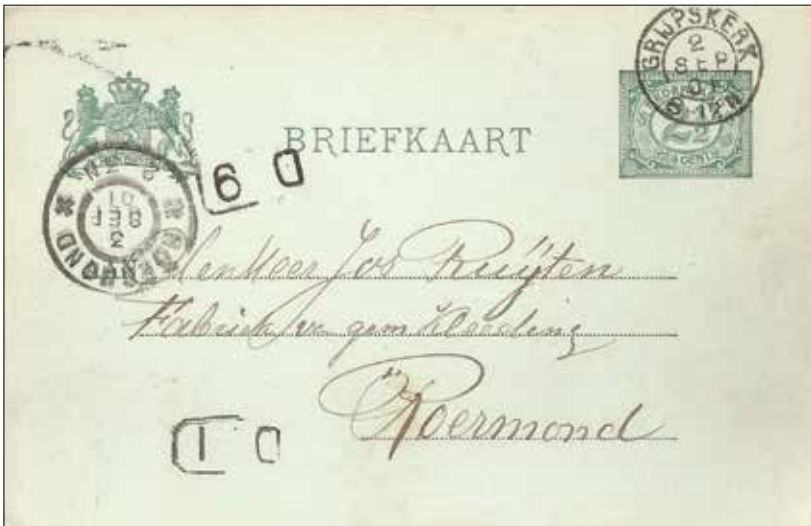 GRIJPSKERK
2
SEP
01
8-12N
2½
CENT
BRIEFKAART
ROERMOND
3
SEP
01
6 D
Den Heer Jos Ruijten
Fabriek v gem Kleeding
Roermond
1 D